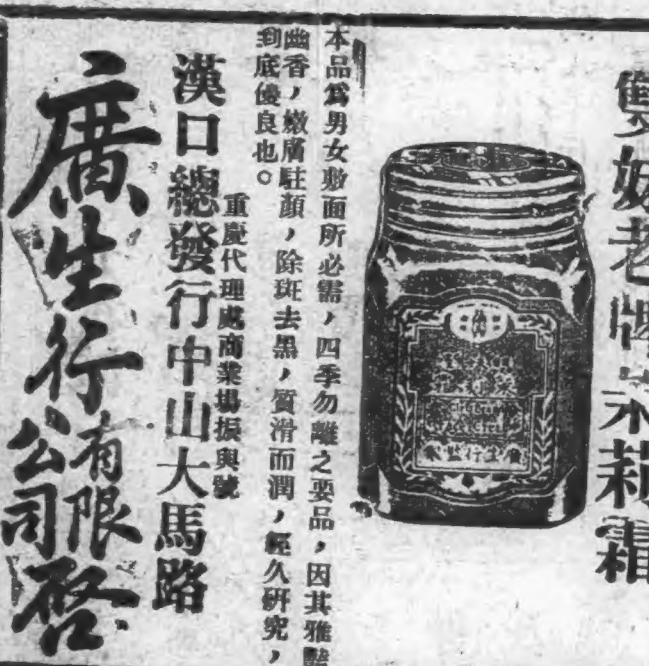 雙妹老牌茉莉霜
本品爲男女敷面所必需，四季勿離之要品，因其雅豔
幽香，嫩膚駐顏，除斑去黑，質滑而潤，經久研究，
到底優良也。
重慶代理處商業場振興號
漢口總發行中山大馬路
廣生行有限公司啓
廣生行監製